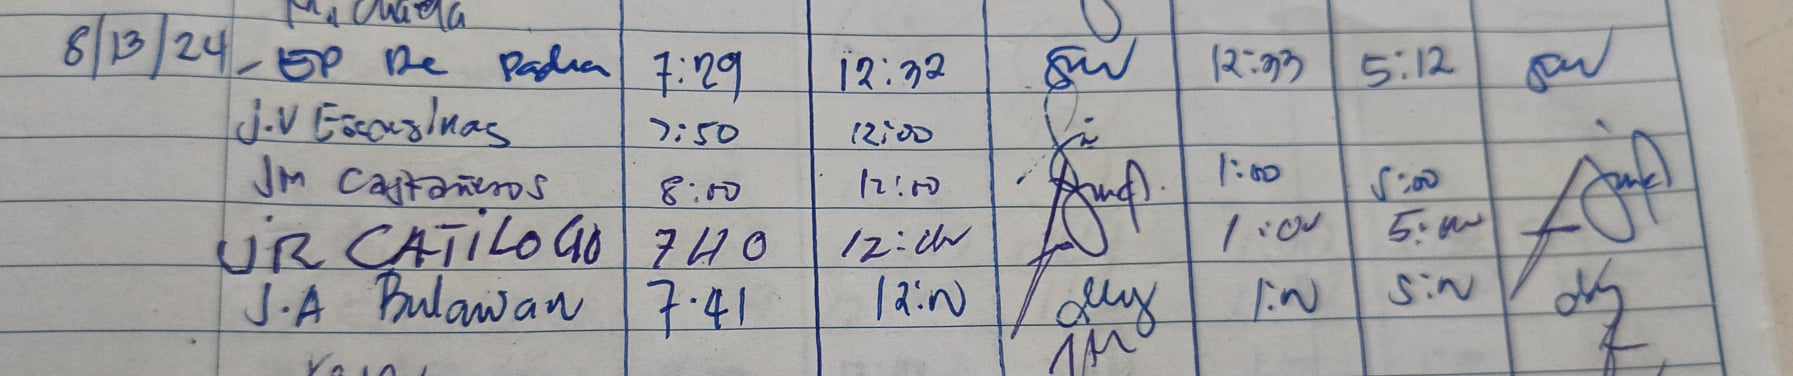 8/13/24 - EP De Padua 7:29 12:32 12:33 5:12
J.V Escasinas 7:50 12:00
JM Castañeros 8:00 12:00 1:00 5:00
JR CATILOGO 740 12:00 1:00 5:00
J.A Bulawan 7.41 12:00 1:00 5:00